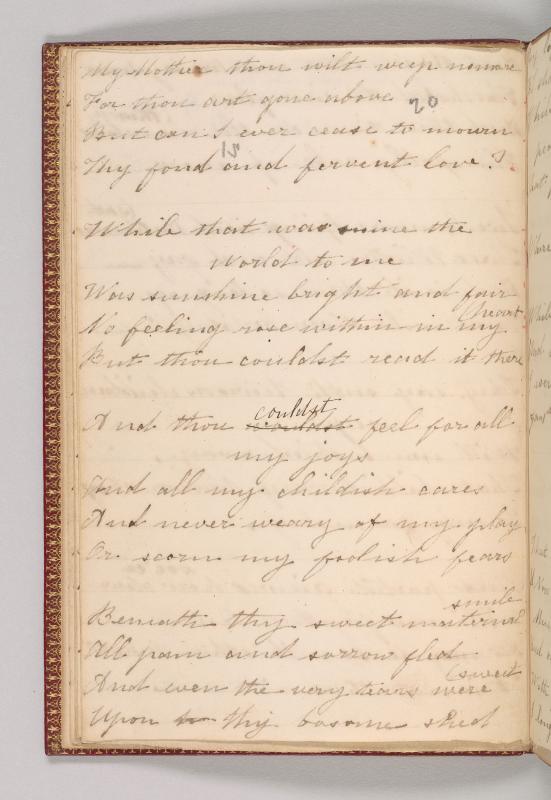 My Mother thou wilt weep nomore
For thou art gone above
20
But can I ever cease to mourn
15
Thy fond and fervent love?
While that was mine the
World to me
Was sunshine bright and fair
No feeling rose within in my (heart
But thou couldst read it there
And thou couldst couldst feel for all
my joys
And all my childish cares
And never weary of my play
Or scorn my foolish fears
Beneath thy sweet maternal smile
All pain and sorrow fled
And even the very tears were (sweet
Upon to thy bosome shed